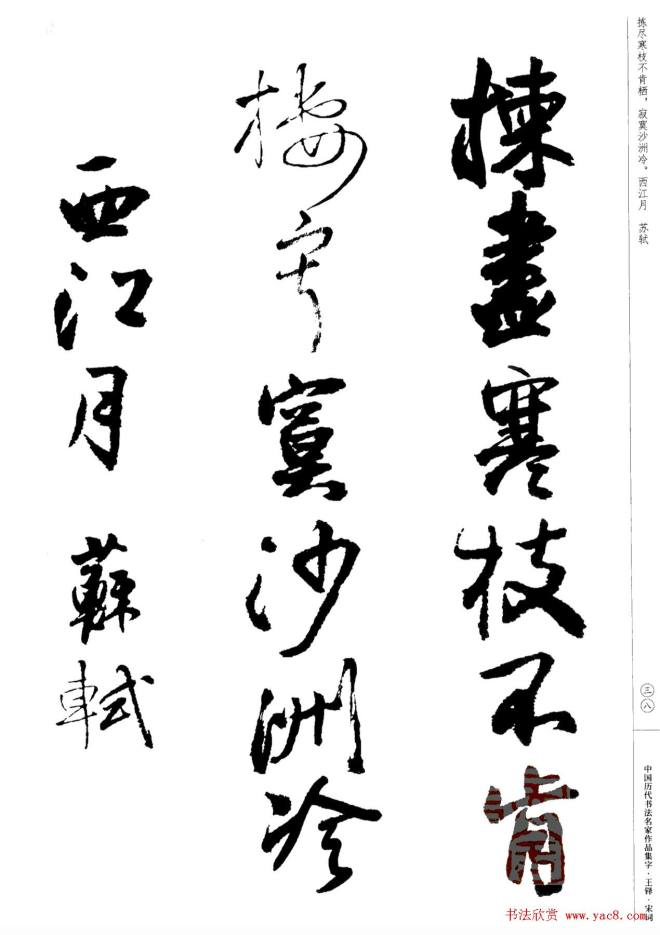 揀盡寒枝不肯
棲寂寞沙洲冷
西江月 蘇軾
拣尽寒枝不肯栖，寂寞沙洲冷。西江月 苏轼
三八
中国历代书法名家作品集字·王铎·宋词
书法欣赏 www.yac8.com